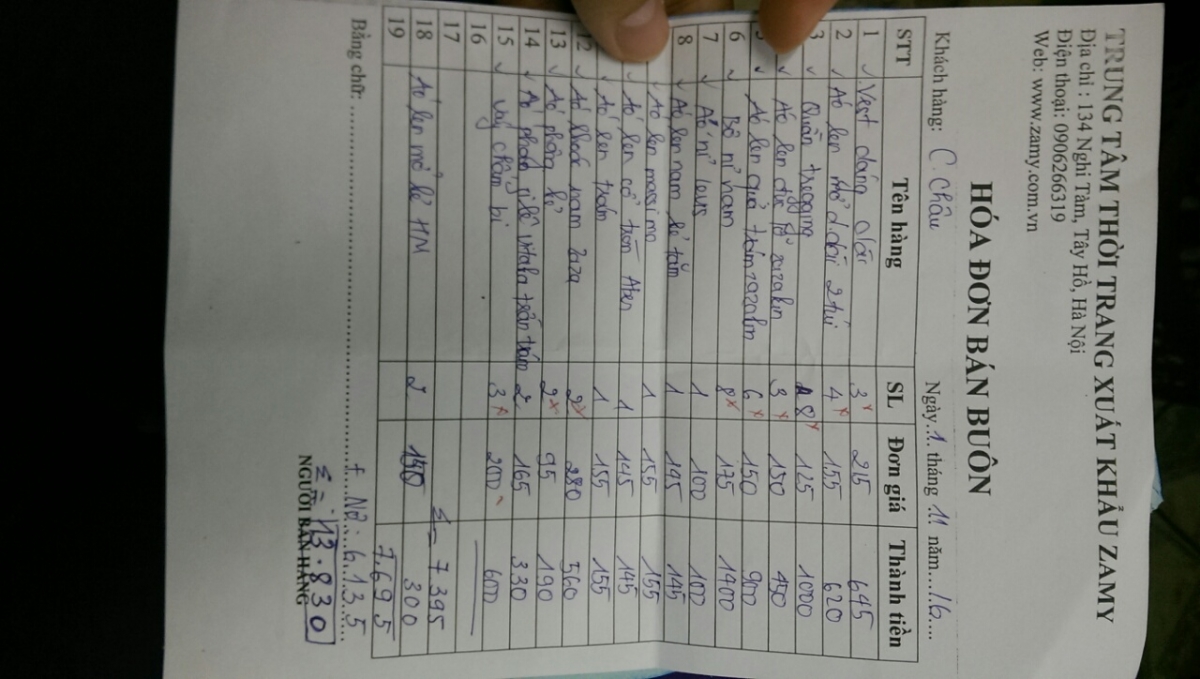 TRUNG TÂM THỜI TRANG XUẤT KHẨU ZAMY
Địa chỉ : 134 Nghi Tàm, Tây Hồ, Hà Nội
Điện thoại: 0906266319
Web: www.zamy.com.vn
HÓA ĐƠN BÁN BUÔN
Khách hàng: C. Châu Ngày 1 tháng 11 năm 16
STT Tên hàng SL Đơn giá Thành tiền
1 Vest dáng dài 3 215 645
2 Áo len mở d.dài 2 túi 4 155 620
3 Quần tregging 8 125 1000
Áo len 3 150 450
5 Áo len quả trám 6 150 900
6 Bộ nỉ nam 8 175 1400
7 Áo nỉ levis 1 100 100
8 Áo len nam kẻ tăm 1 145 145
Áo len massimo 1 155 155
Áo len cổ tròn 1 145 145
Áo len trám 1 155 155
12 Áo khoác nam zara 2 280 560
13 Áo phông kẻ 2 95 190
14 Áo phông trần trám 2 165 330
15 Váy chấm bi 3 200 600
16
17 Σ = 7395
18 Áo len mở kẻ HM 2 150 300
19 7.695
Bằng chữ: + Nợ: 6.135
Σ = 13.830
NGƯỜI BÁN HÀNG